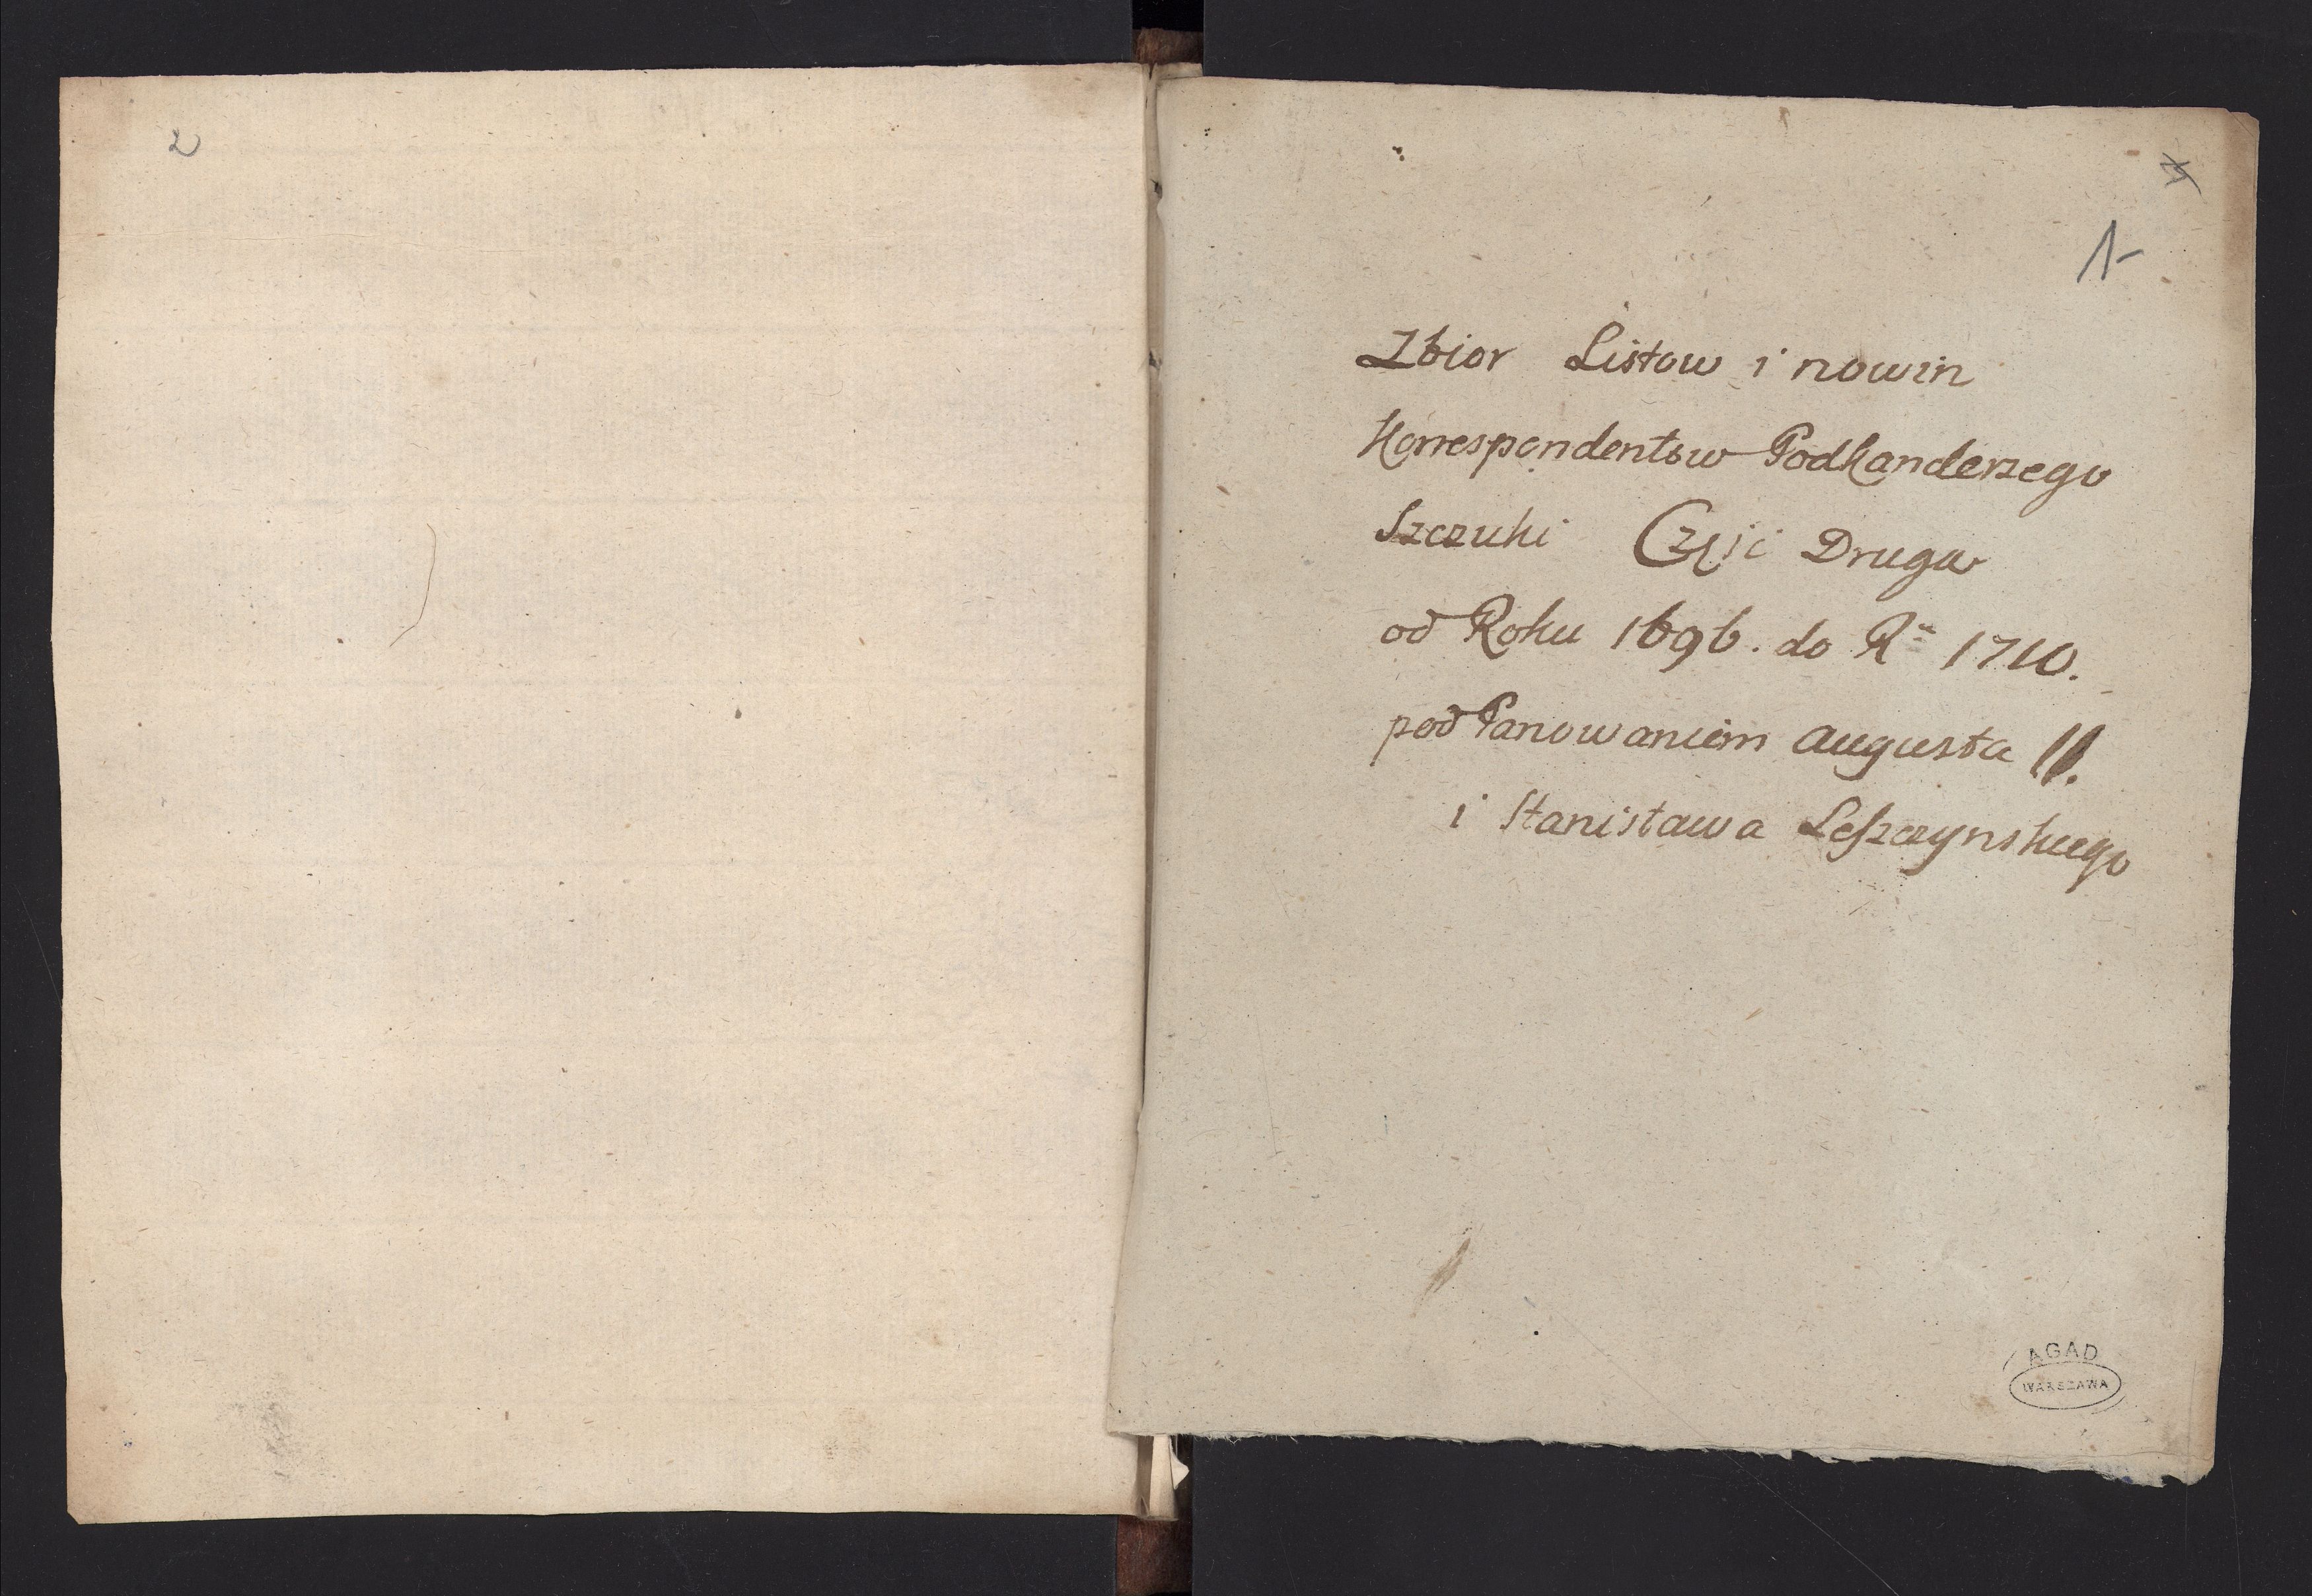 2
1
Zbior Listow i nowin
Korrespondentow Podkanclerzego
Szczuki Częsc Druga
od Roku 1696. do Rº 1710.
pod Panowaniem Augusta II.
i Stanisława Leszczynskiego
AGAD
WARSZAWA